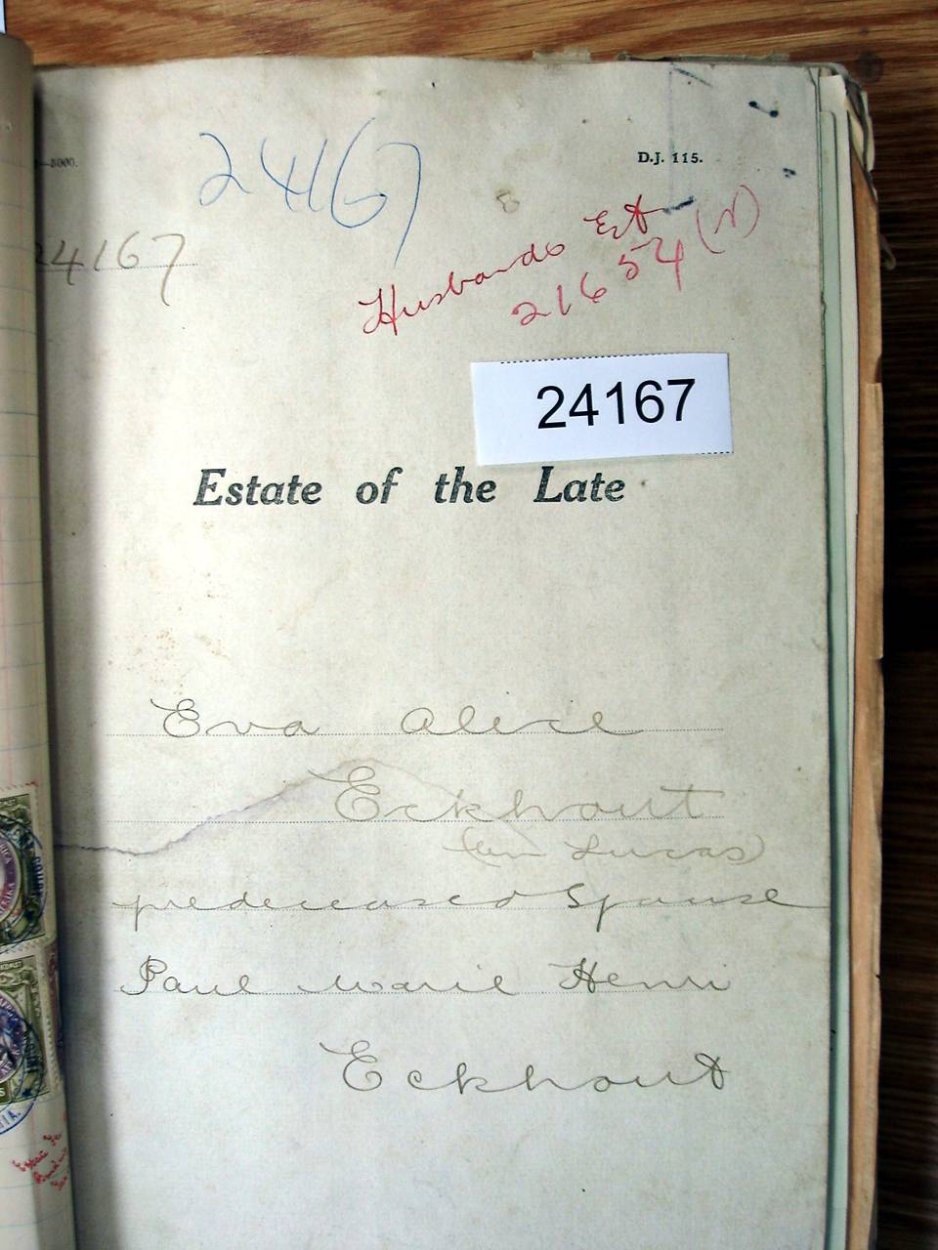 —5000.
D.J. 115.
24167
24167
Husbands Est
21654 (N)
24167
Estate of the Late
Eva Alice
Eckhout
(born Lucas)
predeceased Spouse
Paul Marie Henri
Eckhout